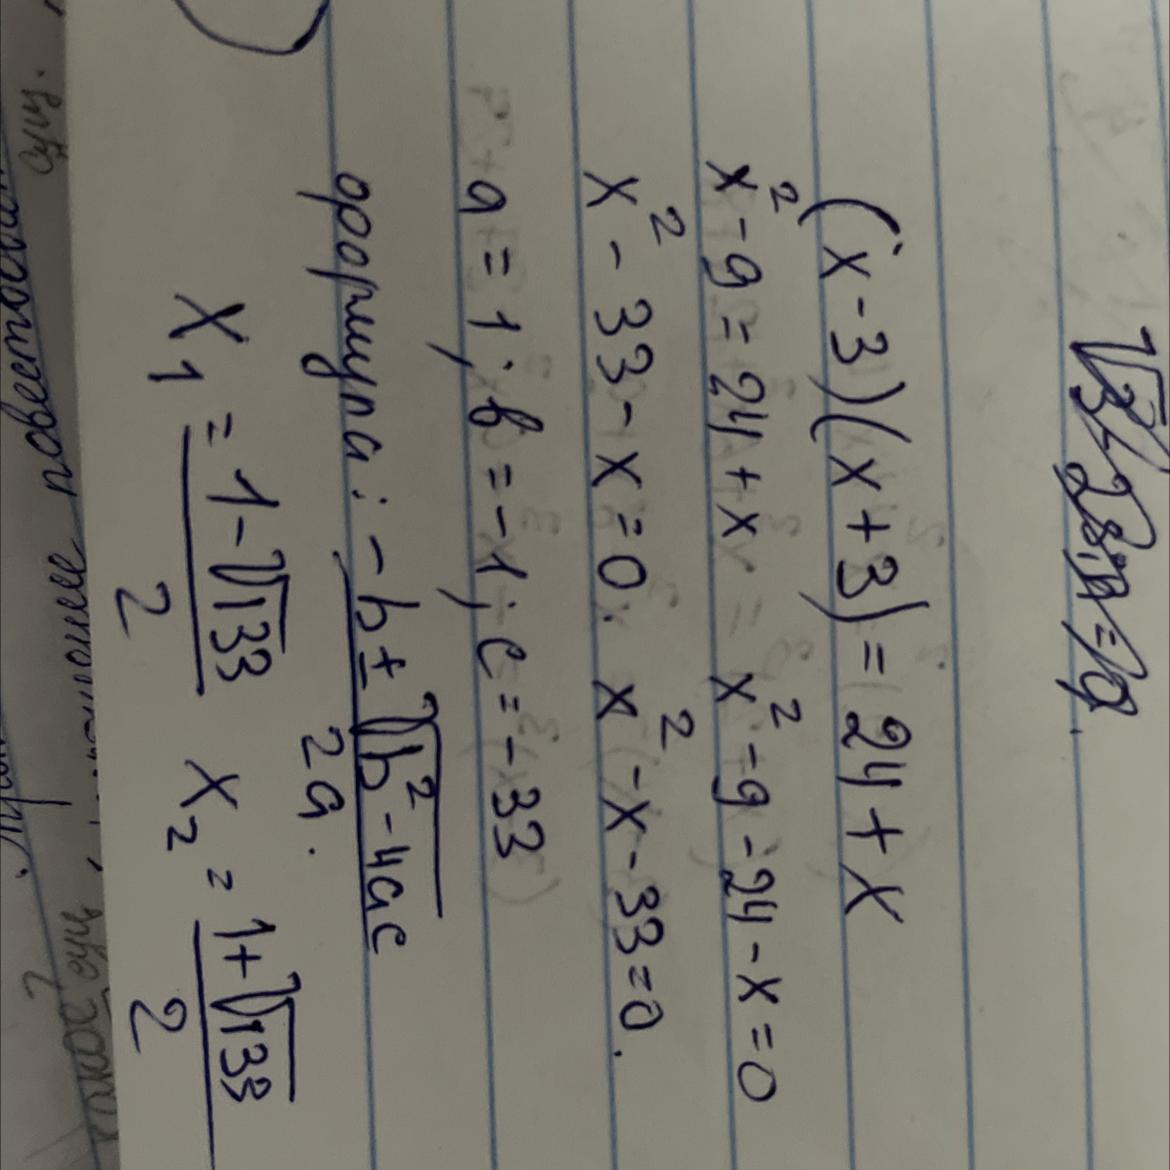 (x-3)(x+3)=24+x
x²-9=24+x = x²-9-24-x=0
x²-33-x=0. x²-x-33=0.
a=1; b=-1; c=-33
формула: -b±√b²-4ac
2a.
x₁ = 1-√133 x₂ = 1+√133
2 2